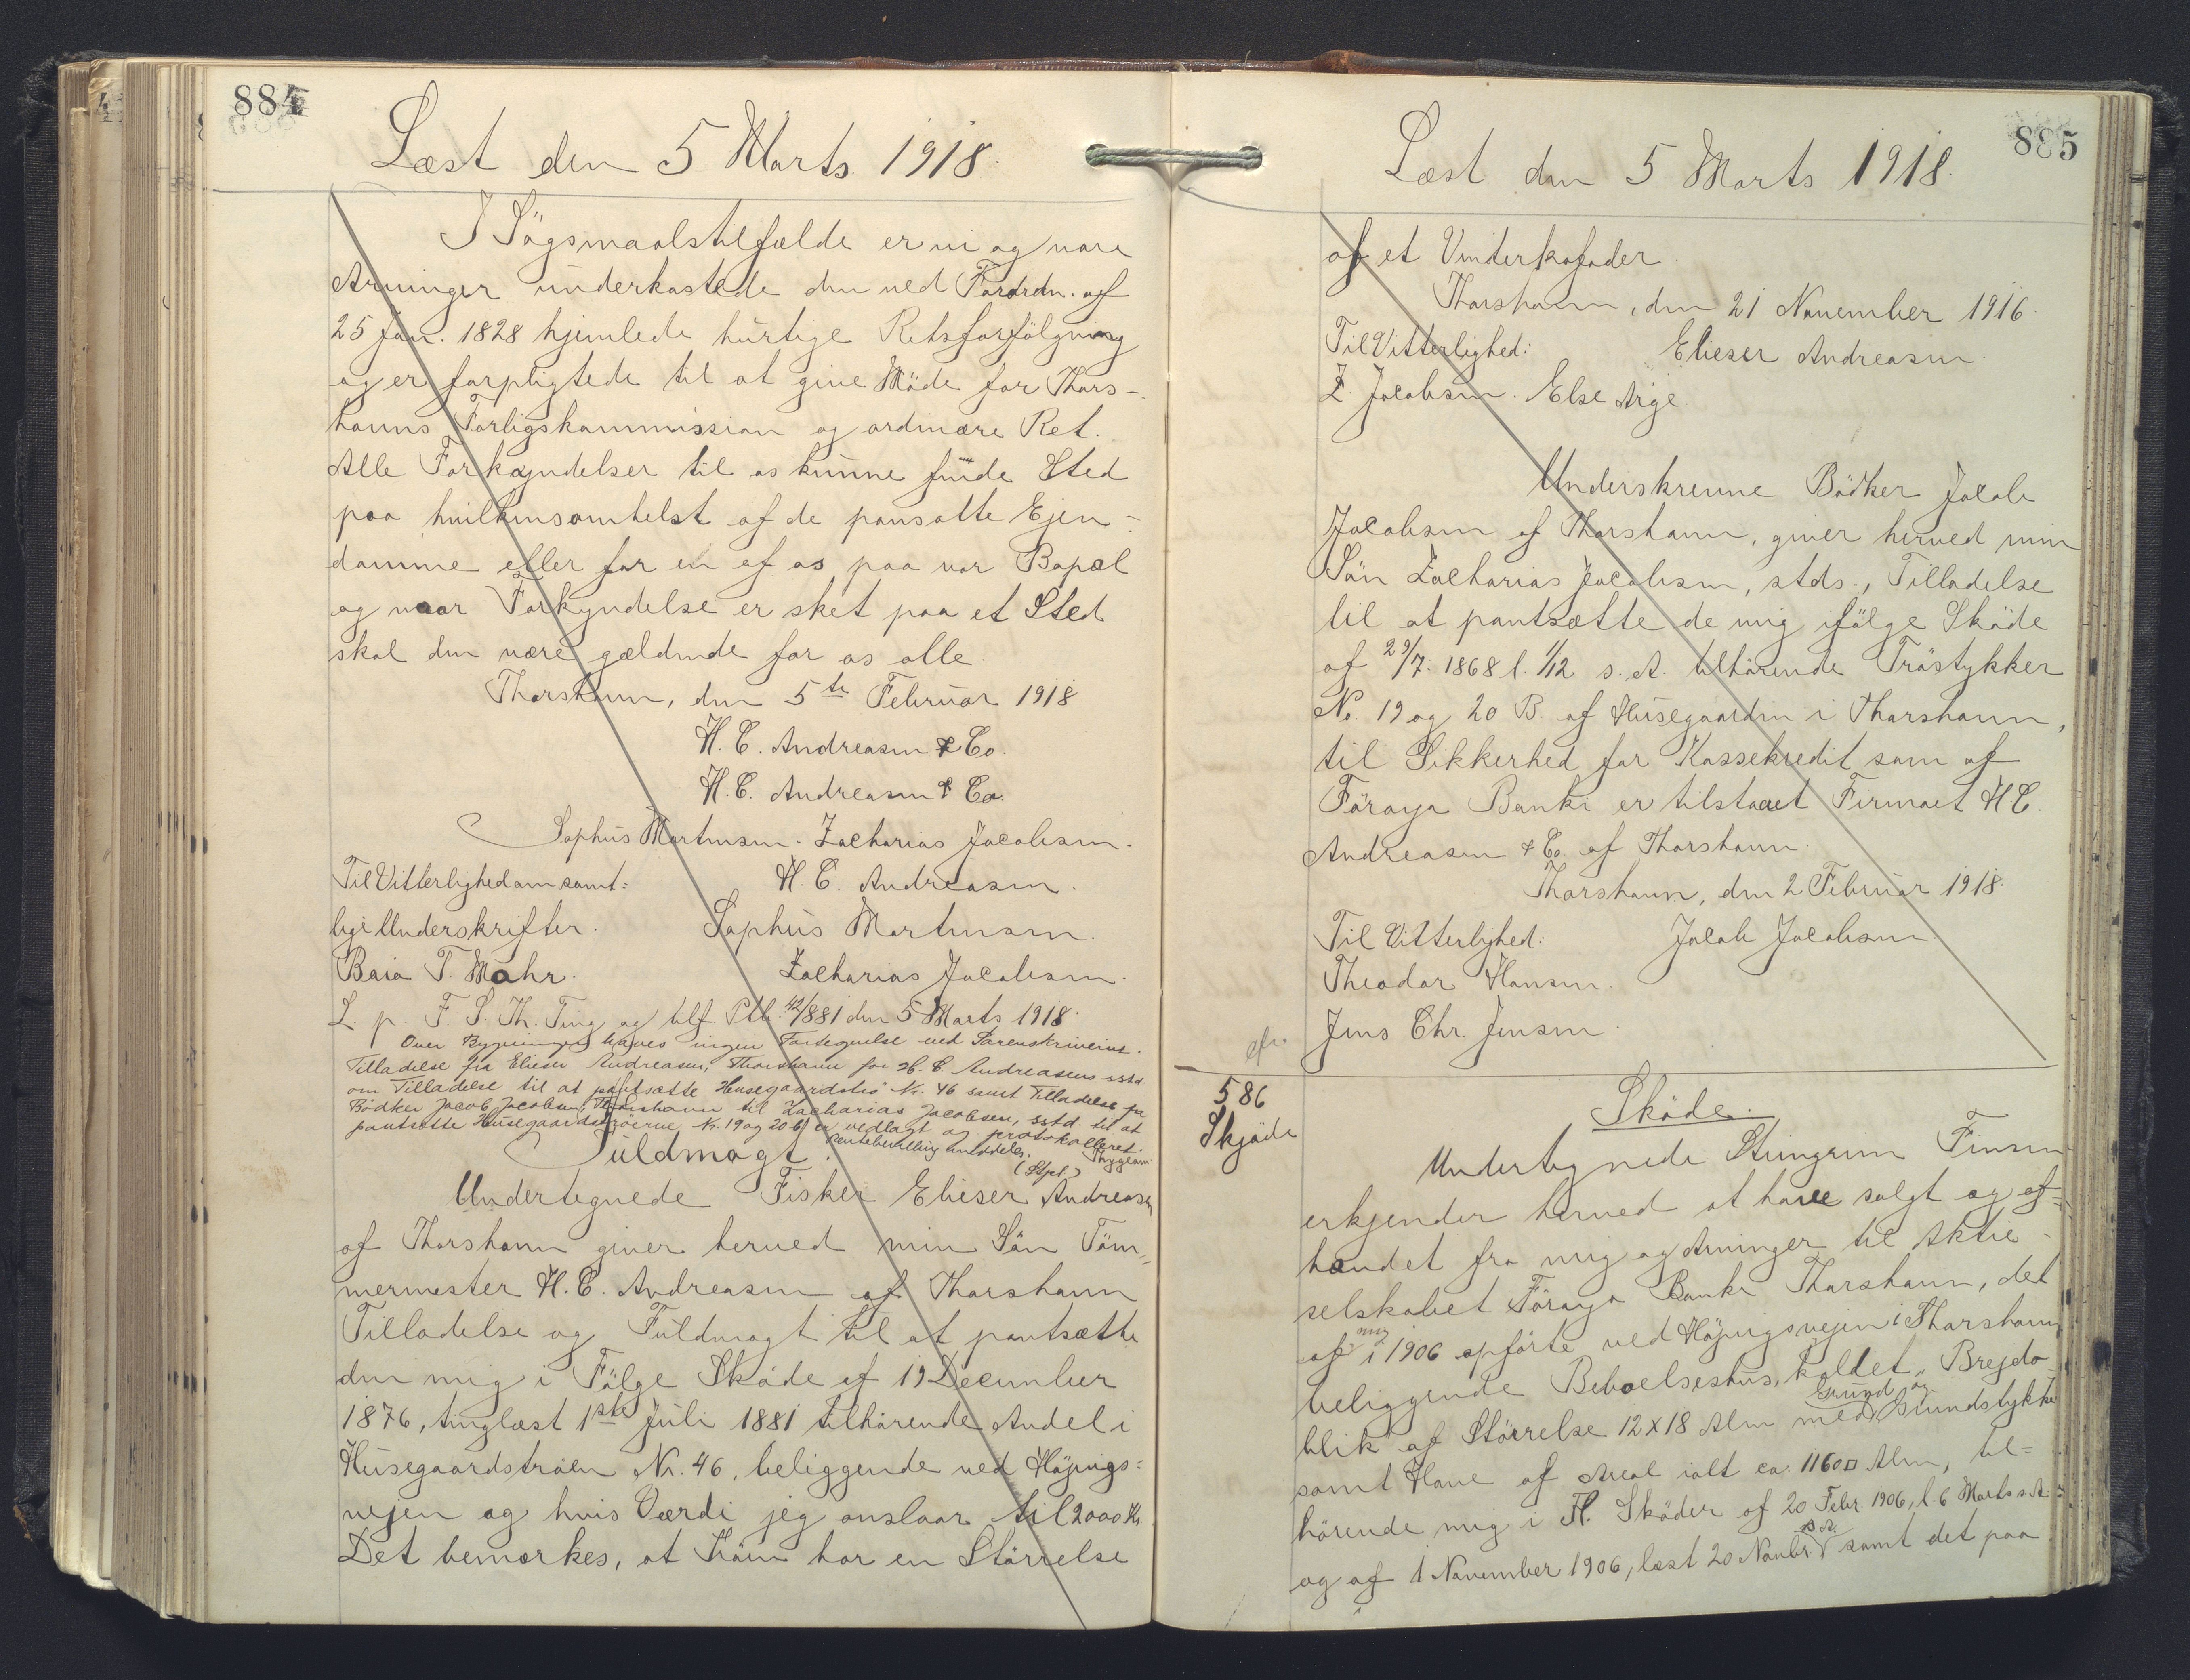 884
Læst den 5 Marts 1918.
I Sögsmaalstilfælde er vi og vore
Arvinger underkastede den ved Forordn. af
25 Jan. 1828 hjemlede hurtige Retsforfölgning
og er forpligtede til at give Möde for Thors-
havns Forligskommission og ordinære Ret.
Alle Forkyndelser til os kunne finde Sted
paa hvilkensomhelst af de pansatte Ejen-
domme eller for en af os paa vor Bopæl
og naar Forkyndelse er sket paa et Sted
skal den være gældende for os alle.
Thorshavn, den 5te Februar 1918
H. C. Andreasen & Co.
H. C. Andreasen & Co.
Sophus Martensen. Zacharias Jacobsen.
Til Vitterlighed om samt- H. C. Andreasen.
lige Underskrifter. Sophus Martensen.
Baia T. Mohr. Zacharias Jacobsen.
L. p. F. S. Th. Ting og tilf. Ptb. 42/881 den 5 Marts 1918.
Over Bygningen haves ingen Fortegnelse ved Sorenskriveriet.
Tilladelse fra Elieser Andreasen, Thorshavn for H. C. Andreasens sstd.
om Tilladelse til at pantsætte Husegaardströ Nr. 46 samt Tilladelse fra
Bödker Jacob Jacobsen, Thorshavn til Zacharias Jacobsen, sstd. til at
pantsætte Husegaardströerne Nr. 19 og 20 b er vedlagt og protokolleret.
Rentebevilling meddeles. Thygesen
(Stpl)
Fuldmagt.
Undertegnede Fisker Elieser Andreasen
af Thorshavn giver herved min Sön Töm-
mermester H. C. Andreasen af Thorshavn
Tilladelse og Fuldmagt til at pantsætte
den mig i Fölge Sköde af 19 December
1876, tinglæst 1ste Juli 1881 tilhörende Andel i
Husegaardströen Nr. 46, beliggende ved Höjvigs-
vejen og hvis Værdi jeg anslaar til 2000 Kr
Det bemærkes, at Tröen har en Störrelse
885
Læst den 5 Marts 1918.
af et Vinterkofoder.
Thorshavn, den 21 November 1916.
Til Vitterlighed: Elieser Andreasen.
Z. Jacobsen. Else Arge.
Underskrevne Bödker Jacob
Jacobsen af Thorshavn, giver herved min
Sön Zacharias Jacobsen, stds., Tilladelse
til at pantsætte de mig ifölge Sköde
af 29/7. 1868 l. 1/12 s. A. tilhörende Tröstykker
No. 19 og 20 B. af Husegaarden i Thorshavn,
til Sikkerhed for Kassekredit som af
Föroya Banki er tilstaaet Firmaet H. C.
Andreasen & Co. af Thorshavn.
Thorshavn, den 2 Februar 1918.
Til Vitterlighed: Jacob Jacobsen.
Theodor Hansen.
Jens Chr. Jensen.
afr.
586
Skjöde
Sköde.
Undertegnede Steingrim Finsen
erkjender herved at have solgt og af-
hændet fra mig og Arvinger til Aktie-
selskabet Föroya Banki Thorshavn, det
af mig i 1906 opförte ved Höjvigsvejen i Thorshavn
beliggende Beboelseshus, kaldet „Brejda-
blik" af Störrelse 12 x 18 Alen med Grund og Grundstykke
samt Have af Areal ialt ca. 1160 □ Alen, til-
hörende mig i Fl. Sköder af 20 Febr. 1906, l. 6 Marts s. A.
og af 1 November 1906, læst 20 Novbr s. A. samt det paa